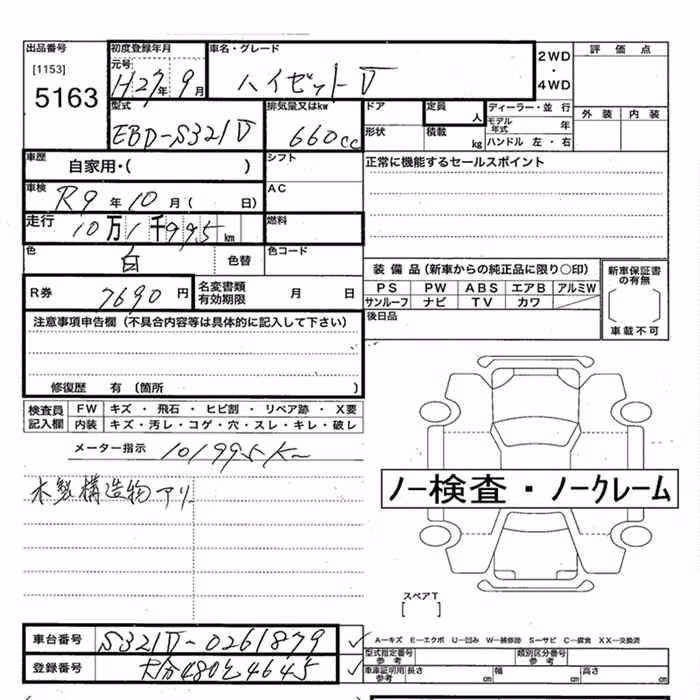 出品番号 初度登録年月 車名・グレード 2WD・4WD 評価点
[1153] 元号
5163 H27年9月 ハイゼットV
型式 排気量又はkw ドア 定員 人 ディーラー・並行 外装 内装
EBD-S321V 660cc 形状 積載 kg モデル年式 年
ハンドル 左・右
車歴 自家用・( ) シフト 正常に機能するセールスポイント
車検 R9年10月( 日) AC
走行 10万1千995km 燃料
色 白 色替 色コード
装備品(新車からの純正品に限り○印) 新車保証書の有無
R券 7690円 名変書類有効期限 月 日 PS PW ABS エアB アルミW
サンルーフ ナビ TV カワ
注意事項申告欄(不具合内容等は具体的に記入して下さい) 後日品 車載不可
修復歴 有(箇所 )
検査員記入欄 FW キズ・飛石・ヒビ割・リペア跡・X要
内装 キズ・汚レ・コゲ・穴・スレ・キレ・破レ
メーター指示 101995K
木製構造物アリ
ノー検査・ノークレーム
スペアT
[ ]
車台番号 S321V-0261879 ✓ A―キズ E―エクボ U―凹み W―補修跡 S―サビ C―腐食 XX―交換済
型式指定番号 参考 類別区分番号 参考
登録番号 大分480 4645 ✓ 車庫証明用参考 長さ cm 幅 cm 高さ cm